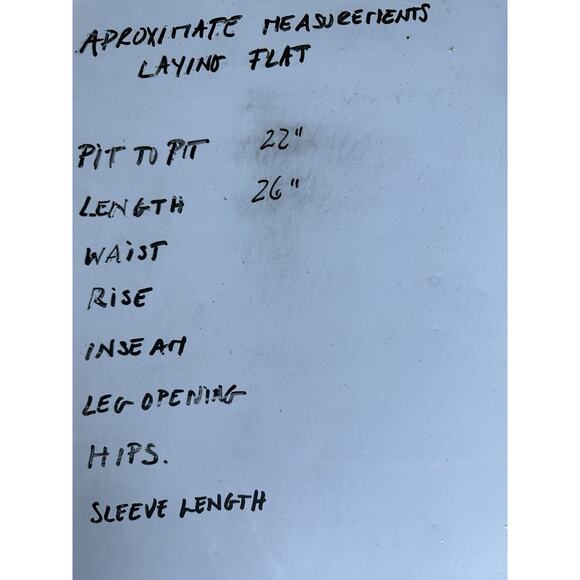 APROXIMATE MEASUREMENTS
LAYING FLAT
PIT TO PIT 22"
LENGTH 26"
WAIST
RISE
INSEAM
LEG OPENING
HIPS.
SLEEVE LENGTH